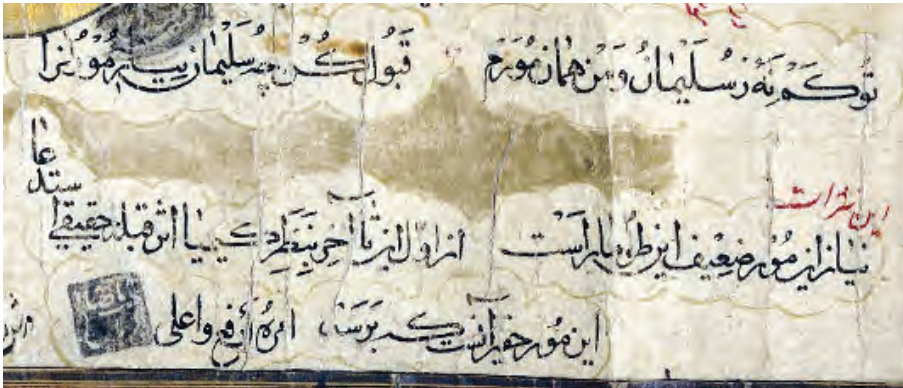 تو کم نه ز سلیمان و من همان مورم قبول کن چه سلیمان نیاز مورانرا
این نثرات
نیاز این مور ضعیف این طومار است از اول این تا آخر بنظر کیمیا اثر قبله حقیقی استدعا
این مور حقیر آنست که برسد امره ارفع و اعلی